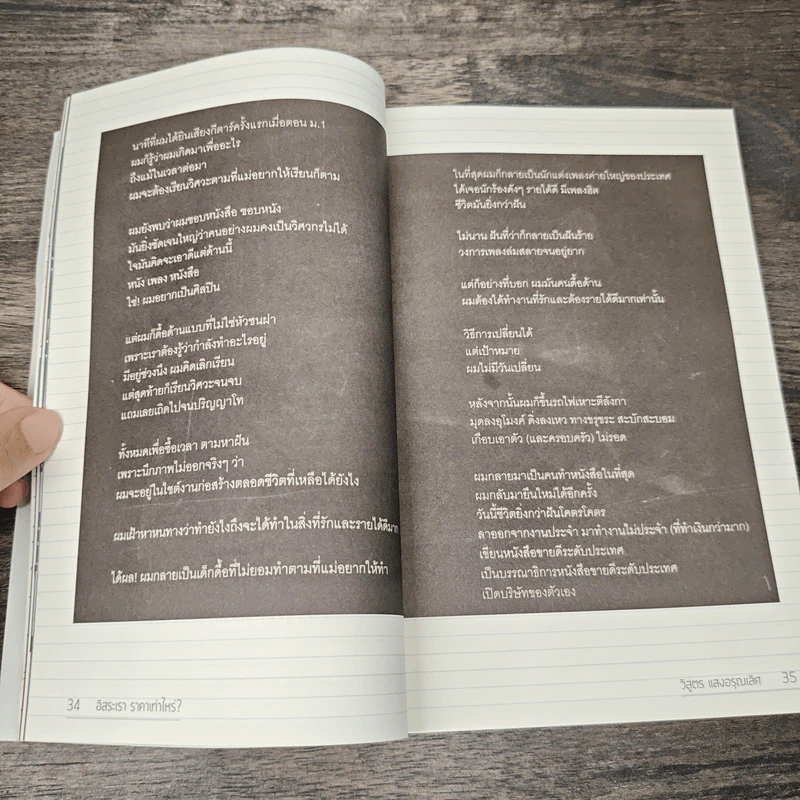 นาทีที่ผมได้ยินเสียงกีตาร์ครั้งแรกเมื่อตอน ม.1
ผมก็รู้ว่าผมเกิดมาเพื่ออะไร
ถึงแม้ในเวลาต่อมา
ผมจะต้องเรียนวิศวะตามที่แม่อยากให้เรียนก็ตาม
ผมยังพบว่าผมชอบหนังสือ ชอบหนัง
มันยิ่งชัดเจนใหญ่ว่าคนอย่างผมคงเป็นวิศวกรไม่ได้
ใจมันคิดจะเอาดีแต่ด้านนี้
หนัง เพลง หนังสือ
ใช่! ผมอยากเป็นศิลปิน
แต่ผมก็ดื้อด้านแบบที่ไม่ใช่หัวชนฝา
เพราะเราต้องรู้ว่ากำลังทำอะไรอยู่
มีอยู่ช่วงนึง ผมคิดเลิกเรียน
แต่สุดท้ายก็เรียนวิศวะจนจบ
แถมเลยเถิดไปจนปริญญาโท
ทั้งหมดเพื่อซื้อเวลา ตามหาฝัน
เพราะนึกภาพไม่ออกจริงๆ ว่า
ผมจะอยู่ในไซต์งานก่อสร้างตลอดชีวิตที่เหลือได้ยังไง
ผมเฝ้าหาหนทางว่าทำยังไงถึงจะได้ทำในสิ่งที่รักและรายได้ดีมาก
ได้ผล! ผมกลายเป็นเด็กดื้อที่ไม่ยอมทำตามที่แม่อยากให้ทำ
34 อิสระเรา ราคาเท่าไหร่?
ในที่สุดผมก็กลายเป็นนักแต่งเพลงค่ายใหญ่ของประเทศ
ได้เจอนักร้องดังๆ รายได้ดี มีเพลงฮิต
ชีวิตมันยิ่งกว่าฝัน
ไม่นาน ฝันที่ว่าก็กลายเป็นฝันร้าย
วงการเพลงล่มสลายจนอยู่ยาก
แต่ก็อย่างที่บอก ผมมันคนดื้อด้าน
ผมต้องได้ทำงานที่รักและต้องรายได้ดีมากเท่านั้น
วิธีการเปลี่ยนได้
แต่เป้าหมาย
ผมไม่มีวันเปลี่ยน
หลังจากนั้นผมก็ขึ้นรถไฟเหาะตีลังกา
มุดลงอุโมงค์ ดิ่งลงเหว ทางขรุขระ สะบักสะบอม
เกือบเอาตัว (และครอบครัว) ไม่รอด
ผมกลายมาเป็นคนทำหนังสือในที่สุด
ผมกลับมายืนใหม่ได้อีกครั้ง
วันนี้ชีวิตยิ่งกว่าฝันโคตรโคตร
ลาออกจากงานประจำ มาทำงานไม่ประจำ (ที่ทำเงินกว่ามาก)
เขียนหนังสือขายดีระดับประเทศ
เป็นบรรณาธิการหนังสือขายดีระดับประเทศ
เปิดบริษัทของตัวเอง
วิสูตร แสงอรุณเลิศ 35